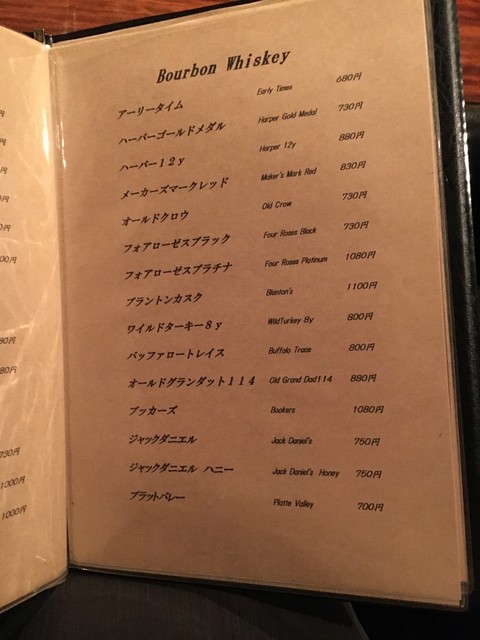 Bourbon Whiskey
アーリータイム Early Times 680円
ハーパーゴールドメダル Harper Gold Medal 730円
ハーパー12y Harper 12y 880円
メーカーズマークレッド Maker's Mark Red 830円
オールドクロウ Old Crow 730円
フォアローゼスブラック Four Roses Black 730円
フォアローゼスプラチナ Four Roses Platinum 1080円
ブラントンカスク Blanton's 1100円
ワイルドターキー8y WildTurkey 8y 800円
バッファロートレイス Buffalo Trace 800円
オールドグランダット114 Old Grand Dad114 880円
ブッカーズ Bookers 1080円
ジャックダニエル Jack Daniel's 750円
ジャックダニエル ハニー Jack Daniel's Honey 750円
プラットバレー Platte Valley 700円
730円
1000円
1000円